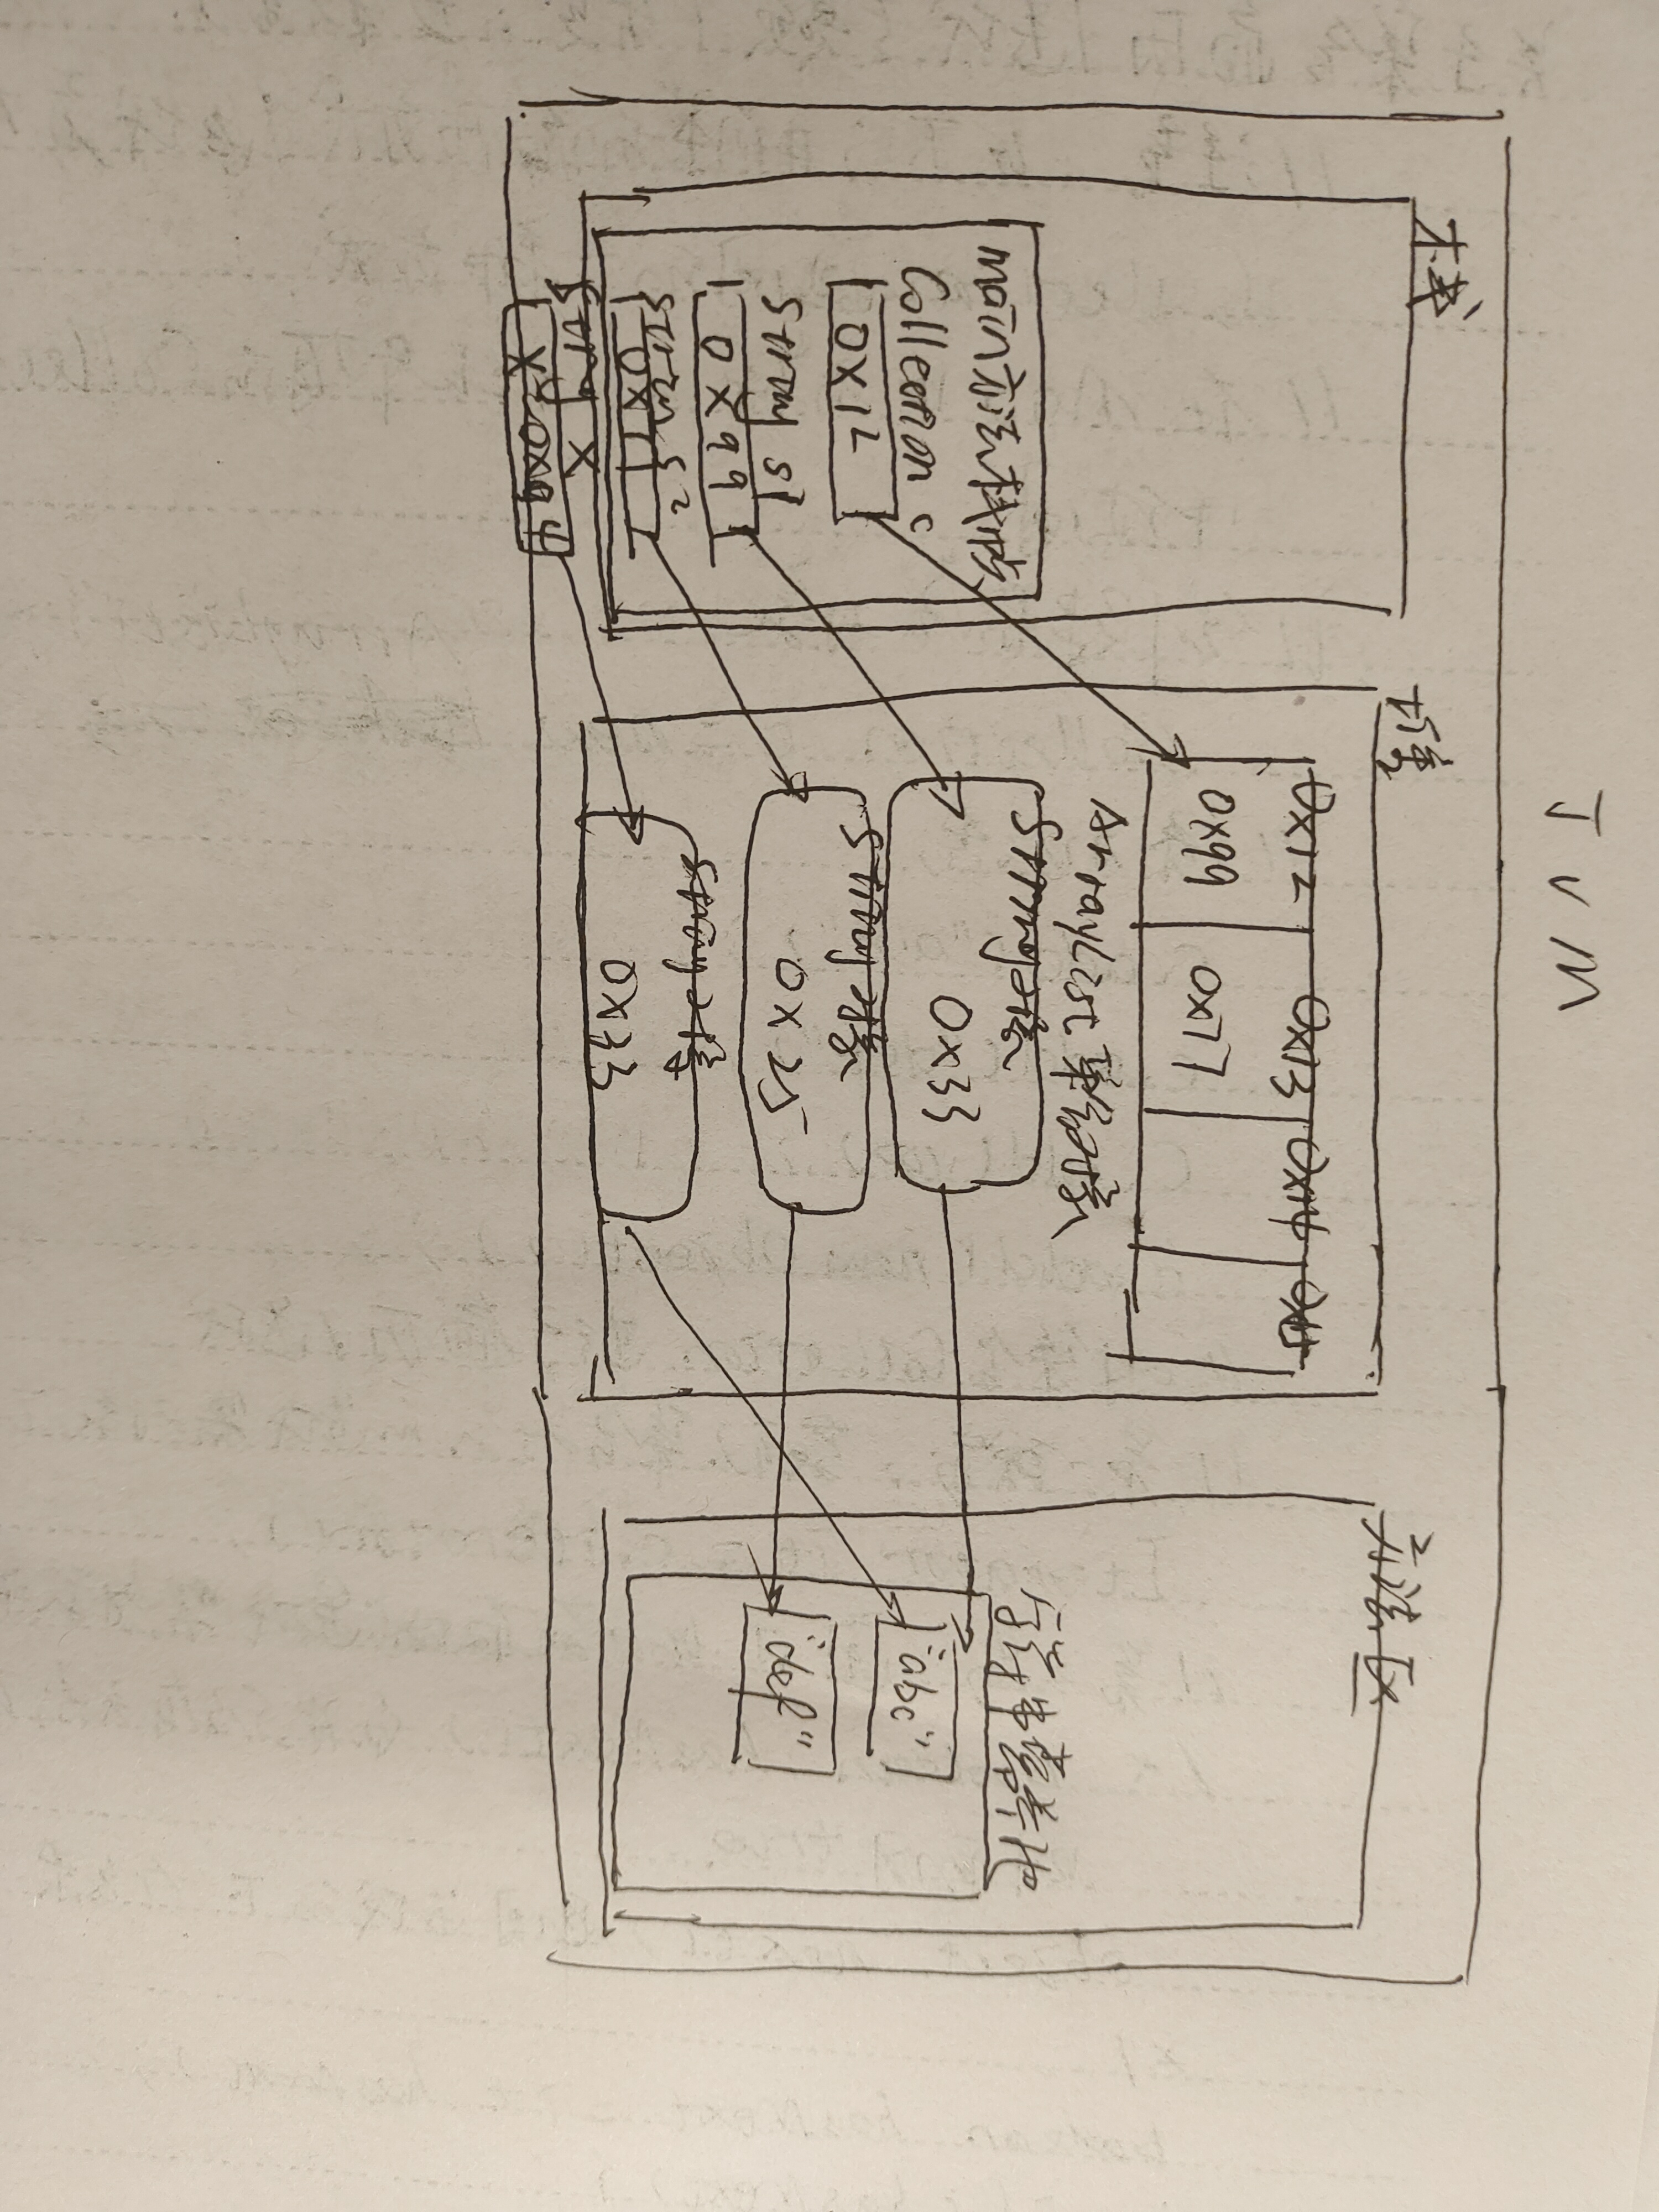 JVM
栈
main方法栈帧
Collection c
0X12
String s1
0X99
String s2
0X77
String X
堆
0x12 0x13 0x14
0x99 0x77
ArrayList集合对象
String对象
0x33
String对象
0x25
String对象
0x43
方法区
字符串常量池
"abc"
"def"